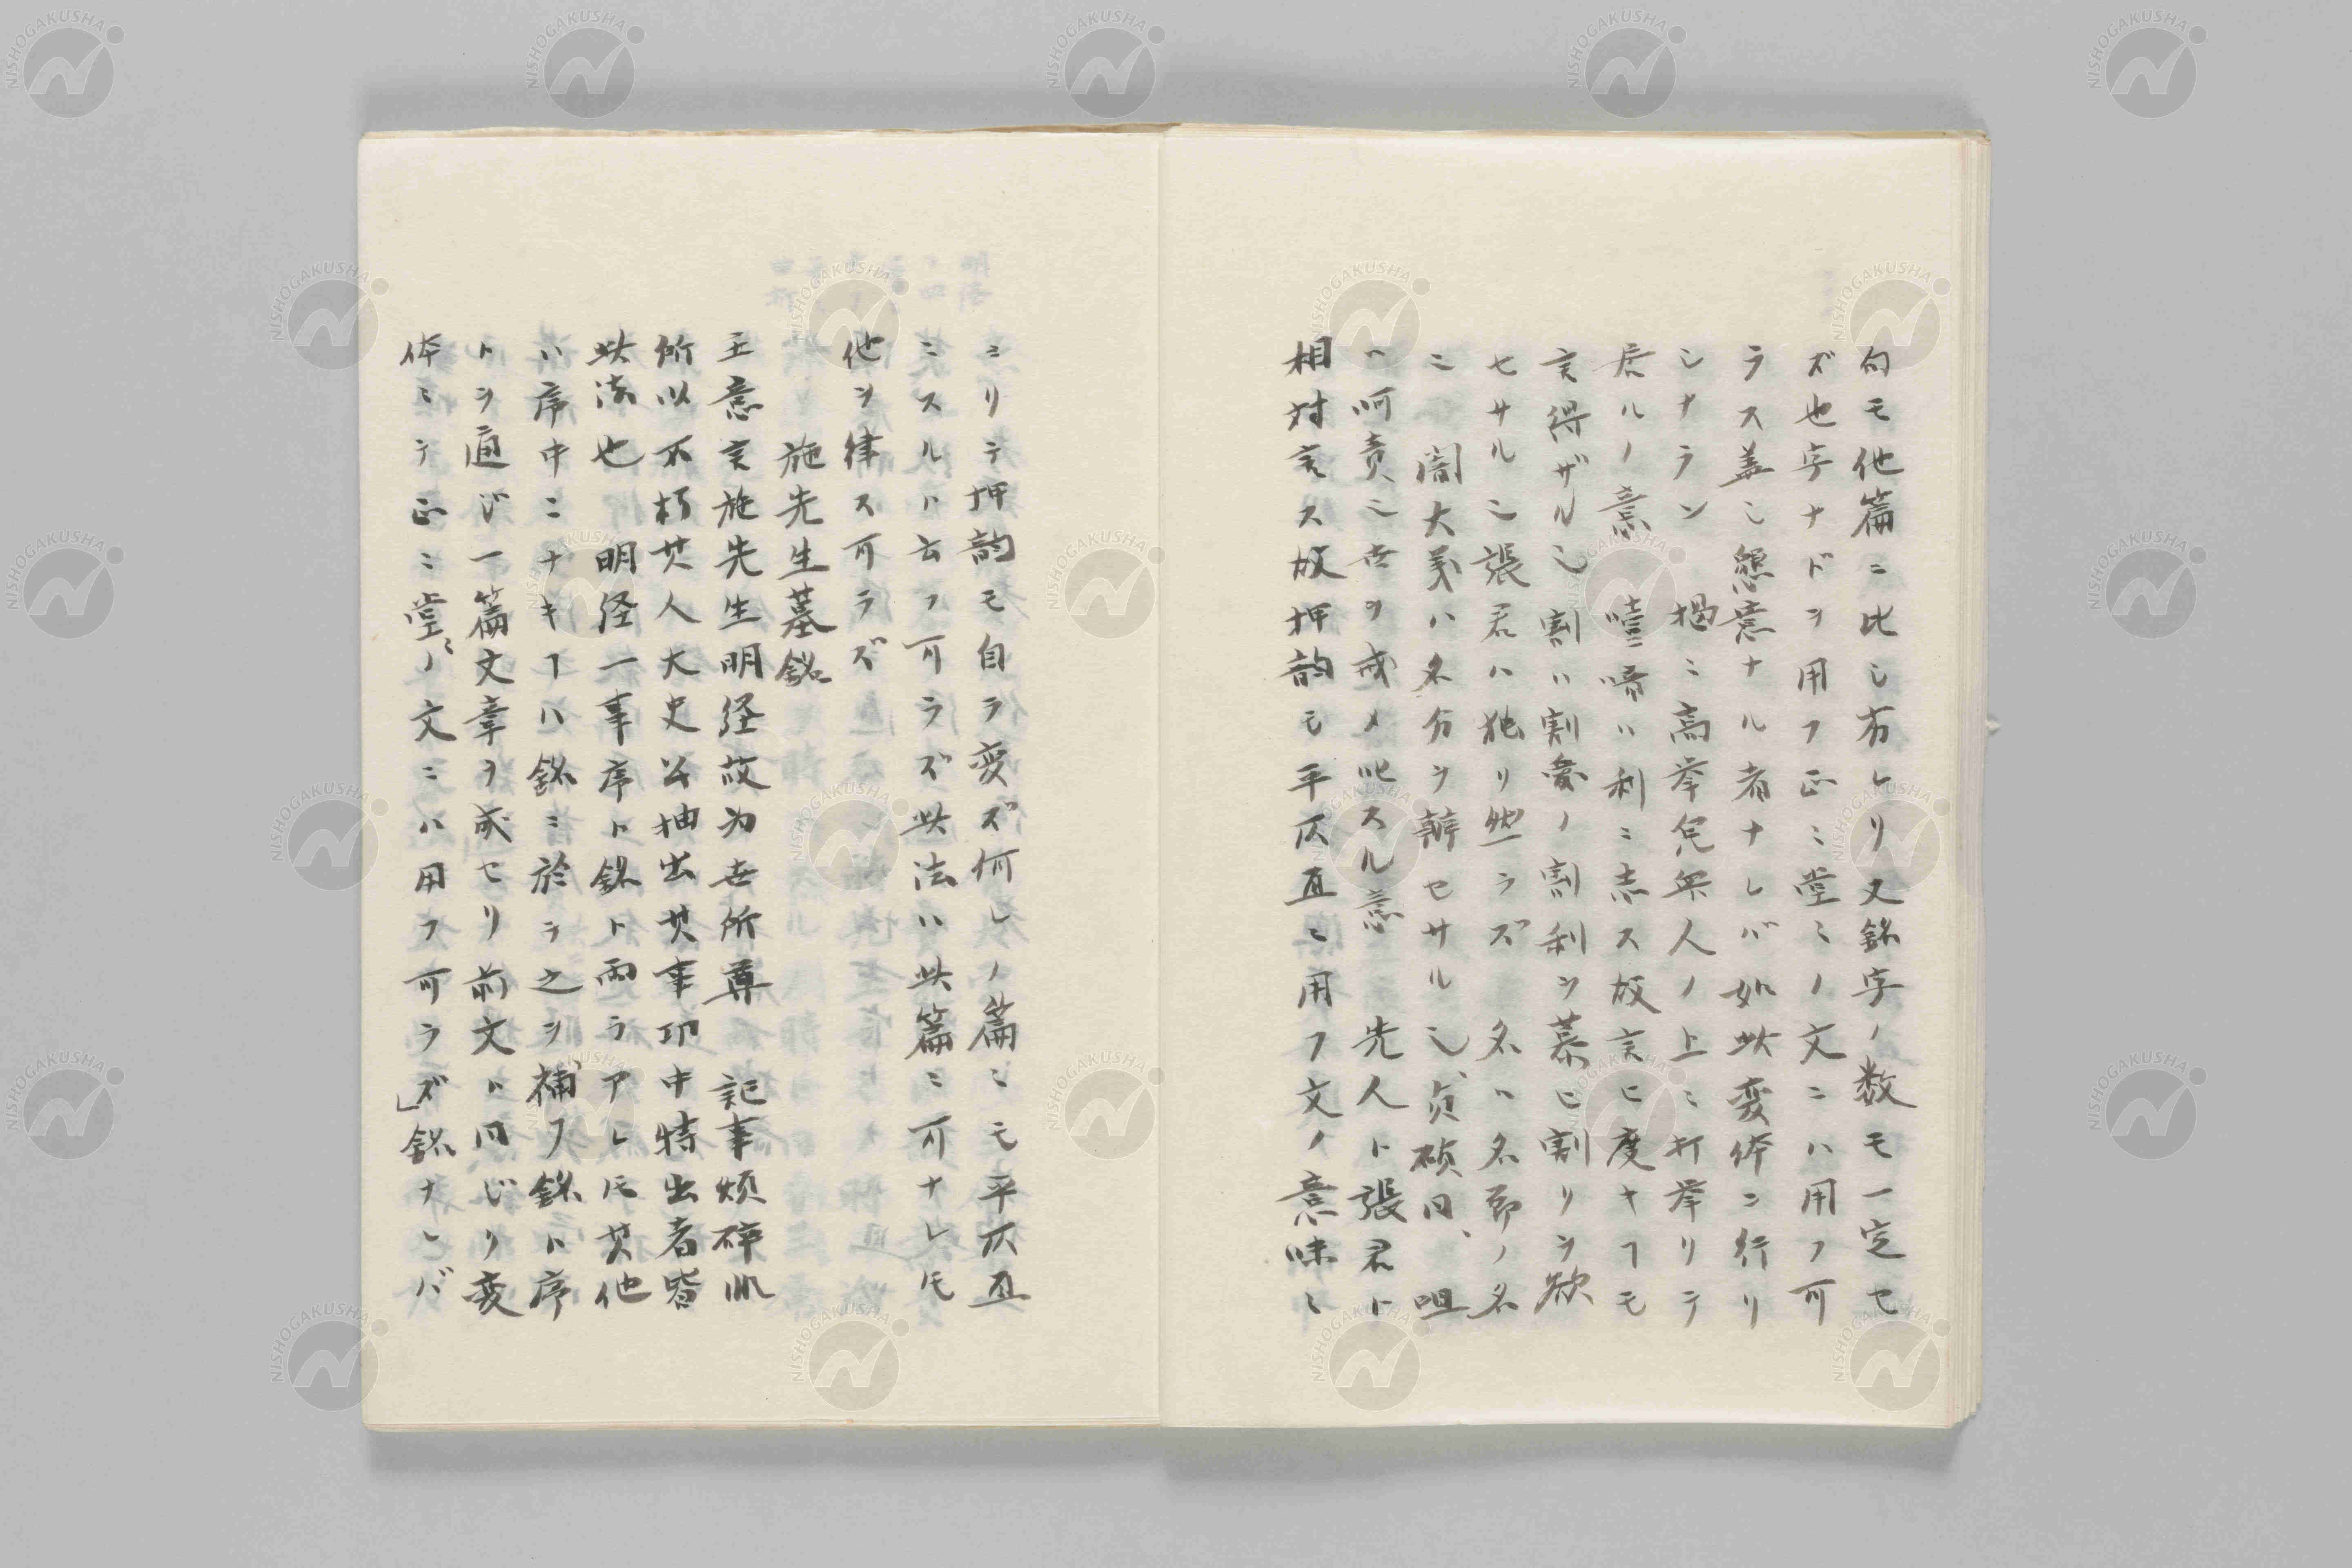 句モ他篇ニ比シ有レリ又銘字ノ数モ一定セ
ズ也字ナドヲ用フ正ミ堂ミノ文ニハ用フ可
ラス蓋シ懇意ナル者ナレバ如此変体ニ行リ
シナラン 掲ミ高挙皃衆人ノ上ミ打挙リテ
居ルノ意 噎喑ハ利ミ志ス故言ヒ度キヿモ
言得ザル也 割ハ割愛ノ割利ヲ慕ヒ割リヲ欲
セサル也張君ハ独リ然ラズ 名ハ名節ノ名
ニ 闇大義ハ名分ヲ辨セサル也、貞碩曰、 咀
ハ呵責ミ世ヲ戒メ叱スル意 先人ト張君ト
相対言ス故押韵モ平仄互ミ用フ文ノ意味ミ
ミリテ押韵モ自ラ変ズ何レノ篇ミモ平仄互
ミスルハ云フ可ラズ此法ハ此篇ミ可ナレ𪜈
他ヲ律ス可ラズ
施先生墓銘
主意言施先生明経故为世所尊 記事煩砕㸃
所以不朽其人大史公抽出其事功中特出者皆
此法也 明経一事序ト銘ト両ラアレ𪜈其他
ハ序中ニナキヿハ銘ミ於テ之ヲ補フ銘ト序
トヲ通ジ一篇文章ヲ成セリ前文ハ同じリ変
体ミテ正ミ堂ミノ文ニハ用フ可ラズ」銘ナレバ